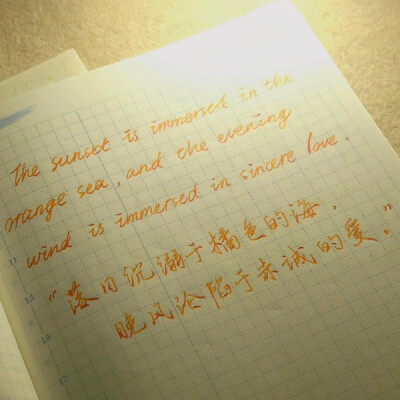 The sunset is immersed in the
orange sea, and the evening
wind is immersed in sincere love.
“落日沉溺于橘色的海，
晚风沦陷于赤诚的爱。”
11
12
15
16
17